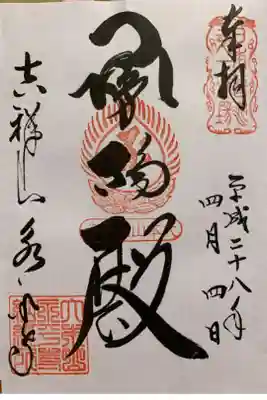 奉拝
平成二十八年
四月四日
承陽殿
吉祥山永平寺